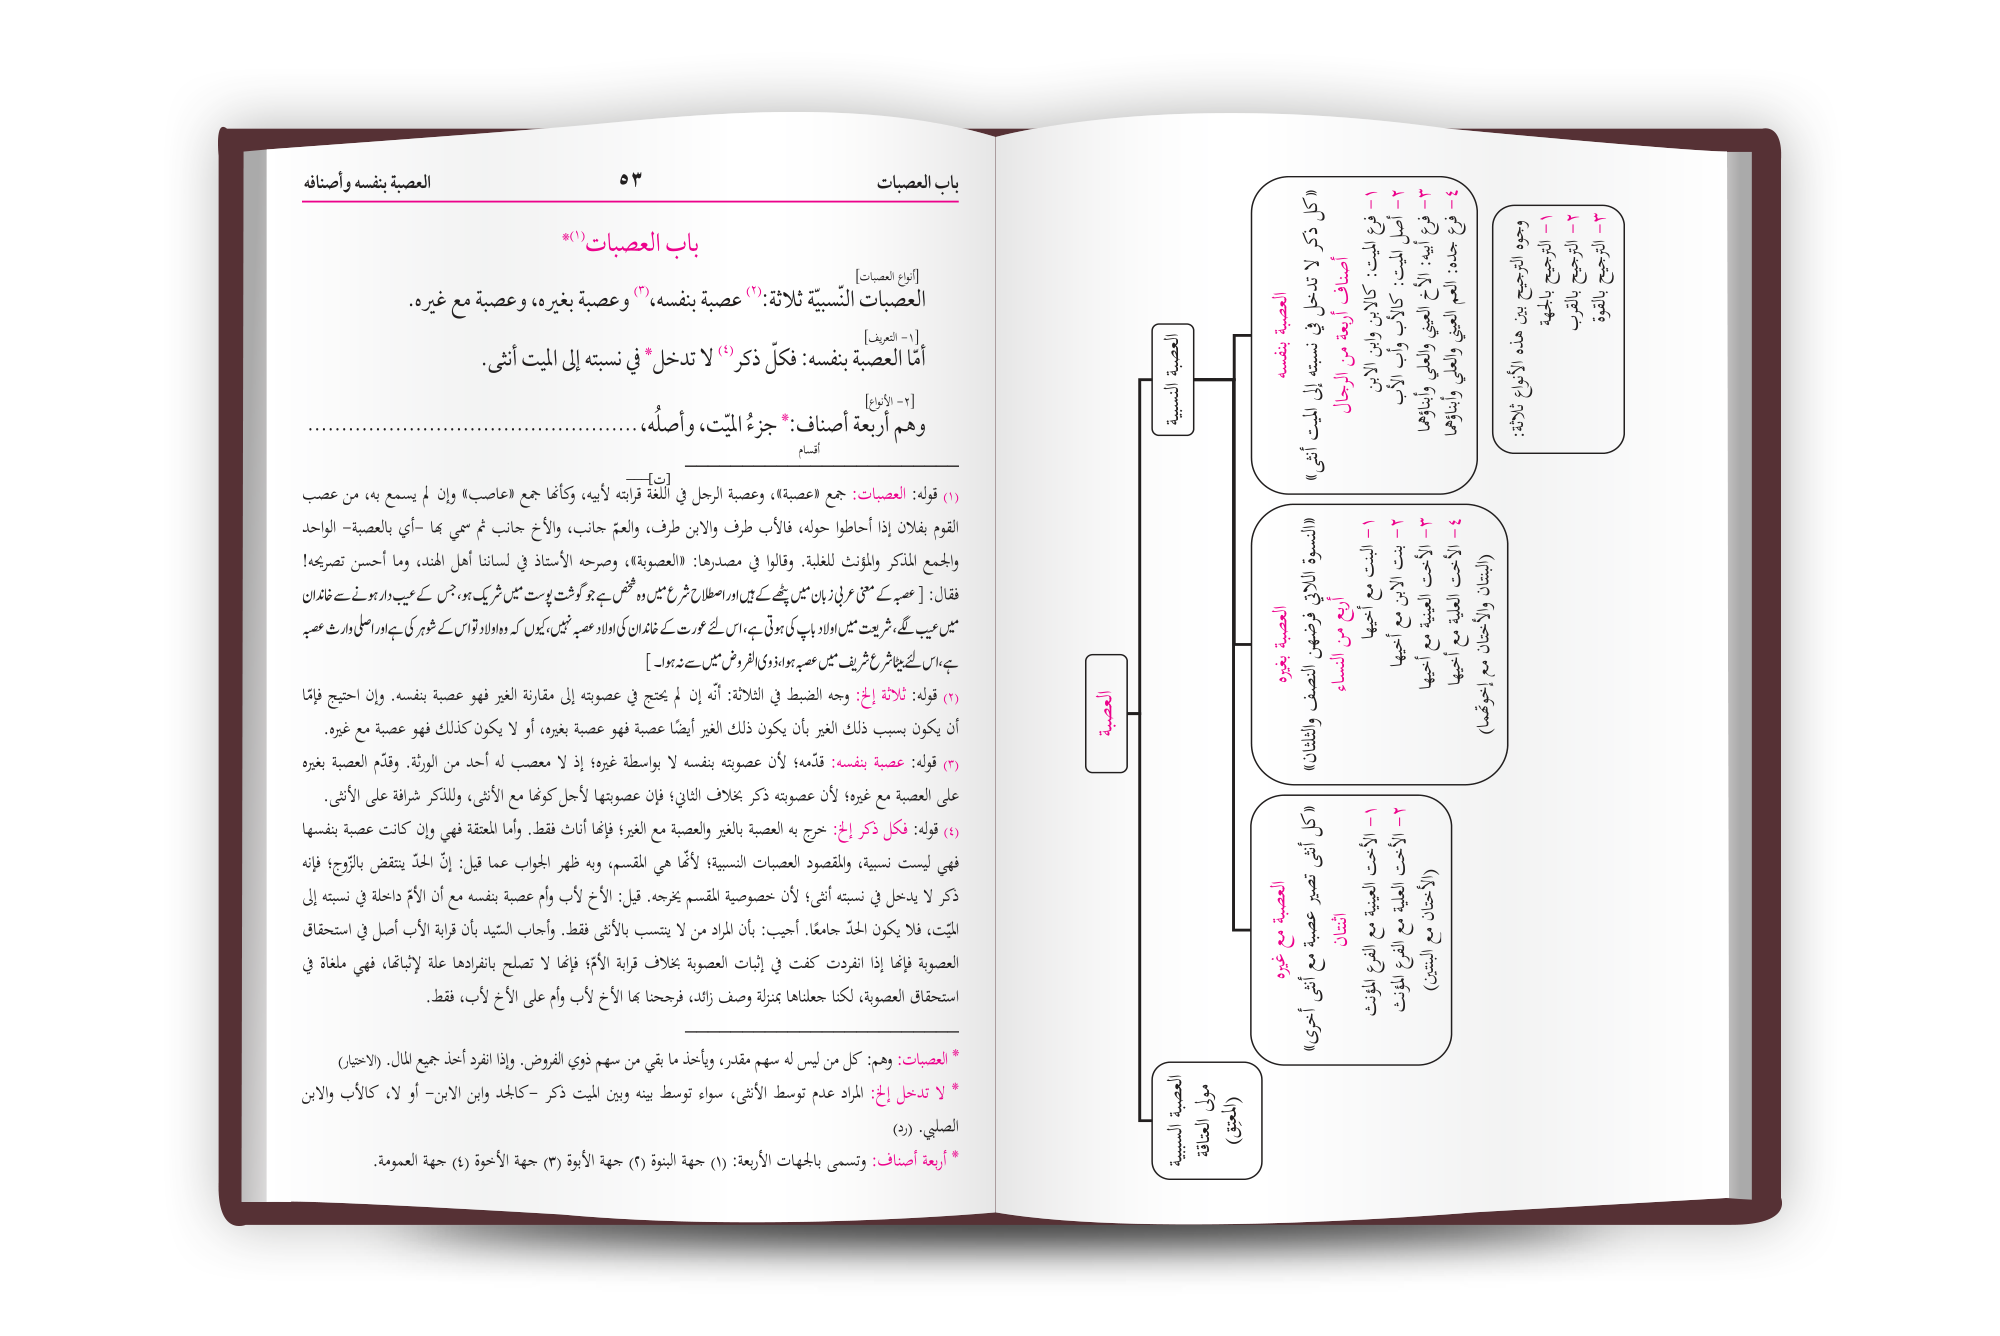 العصبة
العصبة النسبية
العصبة بنفسه
«كل ذكر لا تدخل في نسبته إلى الميت أنثى»
أصناف أربعة من الرجال
١- فرع الميت: كالابن وابن الابن
٢- أصل الميت: كالأب وأب الأب
٣- فرع أبيه: الأخ العيني والعلي وأبناؤهما
٤- فرع جده: العم العيني والعلي وأبناؤهما
وجوه الترجيح بين هذه الأنواع ثلاثة:
١- الترجيح بالجهة
٢- الترجيح بالقرب
٣- الترجيح بالقوة
العصبة بغيره
«النسوة اللاتي فرضهن النصف والثلثان»
أربع من النساء
١- البنت مع أخيها
٢- بنت الابن مع أخيها
٣- الأخت العينية مع أخيها
٤- الأخت العلية مع أخيها
(البنتان والأختان مع إخوتهما)
العصبة مع غيره
«كل أنثى تصير عصبة مع أنثى أخرى»
اثنتان
١- الأخت العينية مع الفرع المؤنث
٢- الأخت العلية مع الفرع المؤنث
(الأختان مع البنتين)
العصبة السببية
مولى العتاقة
(المعتِق)
باب العصبات ٥٣ العصبة بنفسه وأصنافه
باب العصبات(١)*
[أنواع العصبات]
العصبات النّسبيّة ثلاثة:(٢) عصبة بنفسه،(٣) وعصبة بغيره، وعصبة مع غيره.
[١- التعريف]
أمّا العصبة بنفسه: فكلّ ذكر(٤) لا تدخل* في نسبته إلى الميت أنثى.
[٢- الأنواع]
وهم أربعة أصناف:* جزءُ الميّت، وأصلُه، ................................................
أقسام
[ت]
(١) قوله: العصبات: جمع «عصبة»، وعصبة الرجل في اللغة قرابته لأبيه، وكأنها جمع «عاصب» وإن لم يسمع به، من عصب
القوم بفلان إذا أحاطوا حوله، فالأب طرف والابن طرف، والعمّ جانب، والأخ جانب ثم سمي بها –أي بالعصبة– الواحد
والجمع المذكر والمؤنث للغلبة. وقالوا في مصدرها: «العصوبة»، وصرحه الأستاذ في لساننا أهل الهند، وما أحسن تصريحه!
فقال: [ عصبہ کے معنی عربی زبان میں پٹھے کے ہیں اور اصطلاح شرع میں وہ شخص ہے جو گوشت پوست میں شریک ہو، جس کے عیب دار ہونے سے خاندان
میں عیب لگے، شریعت میں اولاد باپ کی ہوتی ہے، اس لئے عورت کے خاندان کی اولاد عصبہ نہیں، کیوں کہ وہ اولاد تو اس کے شوہر کی ہے اور اصلی وارث عصبہ
ہے، اس لئے بیٹا شرع شریف میں عصبہ ہوا، ذوی الفروض میں سے نہ ہوا۔ ]
(٢) قوله: ثلاثة إلخ: وجه الضبط في الثلاثة: أنّه إن لم يحتج في عصوبته إلى مقارنة الغير فهو عصبة بنفسه. وإن احتيج فإمّا
أن يكون بسبب ذلك الغير بأن يكون ذلك الغير أيضًا عصبة فهو عصبة بغيره، أو لا يكون كذلك فهو عصبة مع غيره.
(٣) قوله: عصبة بنفسه: قدّمه؛ لأن عصوبته بنفسه لا بواسطة غيره؛ إذ لا معصب له أحد من الورثة. وقدّم العصبة بغيره
على العصبة مع غيره؛ لأن عصوبته ذكر بخلاف الثاني؛ فإن عصوبتها لأجل كونها مع الأنثى، وللذكر شرافة على الأنثى.
(٤) قوله: فكل ذكر إلخ: خرج به العصبة بالغير والعصبة مع الغير؛ فإنها أناث فقط. وأما المعتقة فهي وإن كانت عصبة بنفسها
فهي ليست نسبية، والمقصود العصبات النسبية؛ لأنّها هي المقسم، وبه ظهر الجواب عما قيل: إنّ الحدّ ينتقض بالزّوج؛ فإنه
ذكر لا يدخل في نسبته أنثى؛ لأن خصوصية المقسم يخرجه. قيل: الأخ لأب وأم عصبة بنفسه مع أن الأمّ داخلة في نسبته إلى
الميّت، فلا يكون الحدّ جامعًا. أجيب: بأن المراد من لا ينتسب بالأنثى فقط. وأجاب السّيد بأن قرابة الأب أصل في استحقاق
العصوبة فإنها إذا انفردت كفت في إثبات العصوبة بخلاف قرابة الأمّ؛ فإنها لا تصلح بانفرادها علة لإثباتها، فهي ملغاة في
استحقاق العصوبة، لكنا جعلناها بمنزلة وصف زائد، فرجحنا بها الأخ لأب وأم على الأخ لأب، فقط.
* العصبات: وهم: كل من ليس له سهم مقدر، ويأخذ ما بقي من سهم ذوي الفروض. وإذا انفرد أخذ جميع المال. (الاختيار)
* لا تدخل إلخ: المراد عدم توسط الأنثى، سواء توسط بينه وبين الميت ذكر –كالجد وابن الابن– أو لا، كالأب والابن
الصلبي. (رد)
* أربعة أصناف: وتسمى بالجهات الأربعة: (١) جهة البنوة (٢) جهة الأبوة (٣) جهة الأخوة (٤) جهة العمومة.